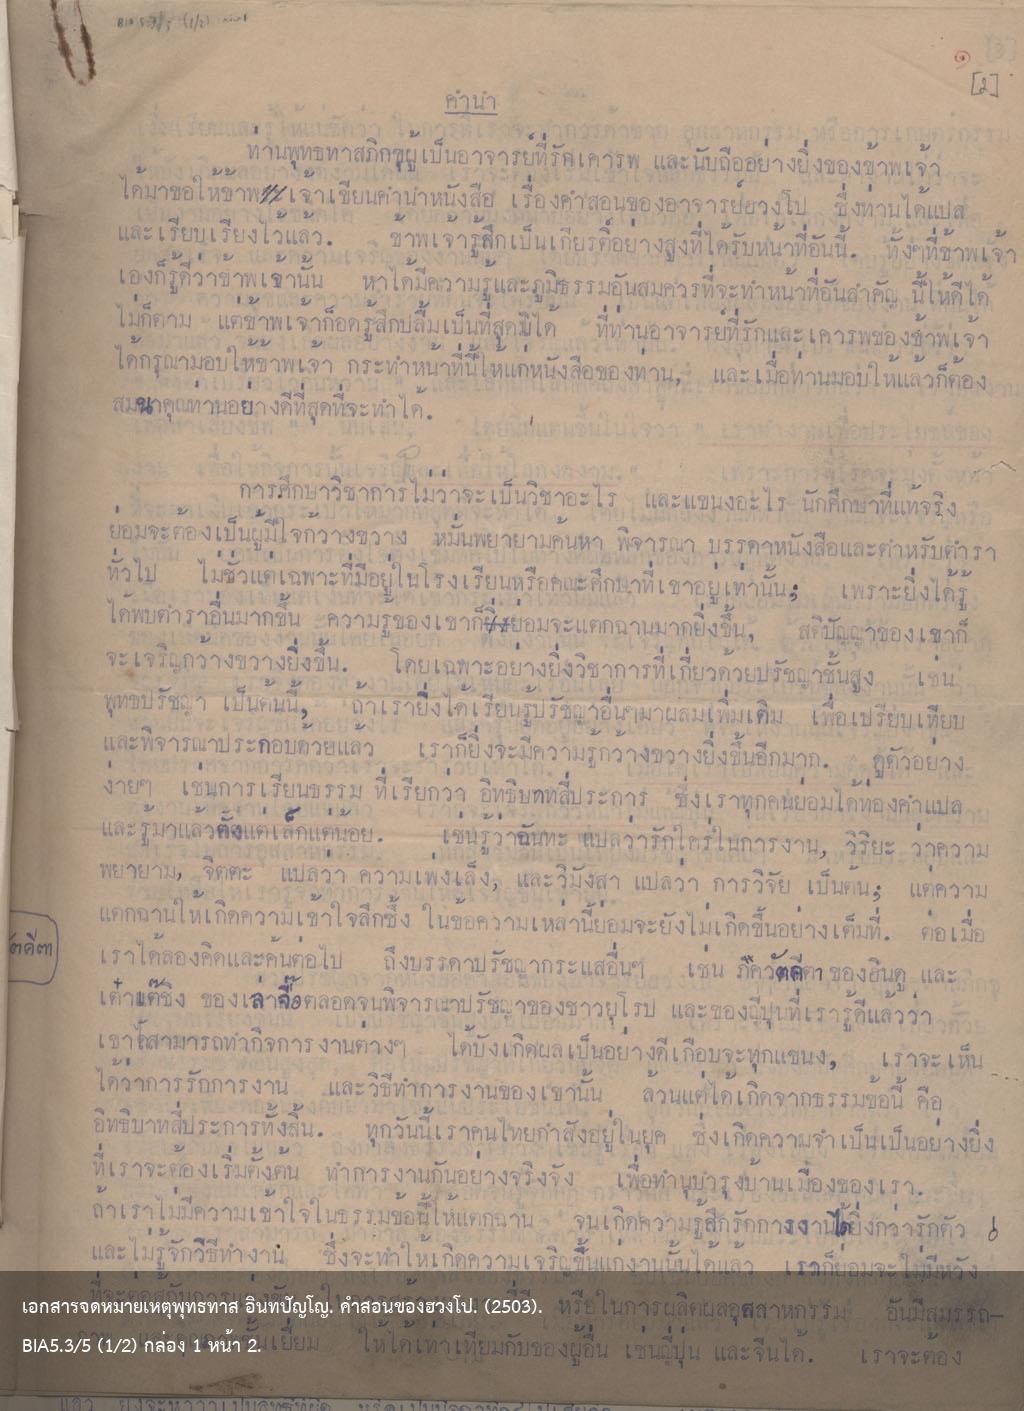 ๑
[๒]
คำนำ
ท่านพุทธทาสภิกขุผู้เป็นอาจารย์ที่รักเคารพ และนับถืออย่างยิ่งของข้าพเจ้า
ได้มาขอให้ข้าพเจ้าเขียนคำนำหนังสือ เรื่องคำสอนของอาจารย์ฮวงโป ซึ่งท่านได้แปล
และเรียบเรียงไว้แล้ว. ข้าพเจ้ารู้สึกเป็นเกียรติ์อย่างสูงที่ได้รับหน้าที่อันนี้. ทั้งๆที่ข้าพเจ้า
เองก็รู้ดีว่าข้าพเจ้านั้น หาได้มีความรู้และภูมิธรรมอันสมควรที่จะทำหน้าที่อันสำคัญ นี้ให้ดีได้
ไม่ก็ตาม แต่ข้าพเจ้าก็อดรู้สึกปลื้มเป็นที่สุดมิได้ ที่ท่านอาจารย์ที่รักและเคารพของข้าพเจ้า
ได้กรุณามอบให้ข้าพเจ้า กระทำหน้าที่นี้ให้แก่หนังสือของท่าน, และเมื่อท่านมอบให้แล้วก็ต้อง
สมนาคุณท่านอย่างดีที่สุดที่จะทำได้.
การศึกษาวิชาการไม่ว่าจะเป็นวิชาอะไร และแขนงอะไร นักศึกษาที่แท้จริง
ย่อมจะต้องเป็นผู้มีใจกว้างขวาง หมั่นพยายามค้นหา พิจารณา บรรดาหนังสือและตำหรับตำรา
ทั่วไป ไม่ชั่วแต่เฉพาะที่มีอยู่ในโรงเรียนหรือคณะศึกษาที่เขาอยู่เท่านั้น; เพราะยิ่งได้รู้
ได้พบตำราอื่นมากขึ้น ความรู้ของเขาก็ย่อมจะแตกฉานมากยิ่งขึ้น, สติปัญญาของเขาก็
จะเจริญกว้างขวางยิ่งขึ้น. โดยเฉพาะอย่างยิ่งวิชาการที่เกี่ยวด้วยปรัชญาชั้นสูง เช่น
พุทธปรัชญา เป็นต้นนี้, ถ้าเรายิ่งได้เรียนรู้ปรัชญาอื่นๆมาผสมเพิ่มเติม เพื่อเปรียบเทียบ
และพิจารณาประกอบด้วยแล้ว เราก็ยิ่งจะมีความรู้กว้างขวางยิ่งขึ้นอีกมาก. ดูตัวอย่าง
ง่ายๆ เช่นการเรียนธรรม ที่เรียกว่า อิทธิบาทสี่ประการ ซึ่งเราทุกคนย่อมได้ท่องคำแปล
และรู้มาแล้วตั้งแต่เล็กแต่น้อย. เช่นรู้ว่าฉันทะ แปลว่ารักใคร่ในการงาน, วิริยะ ว่าความ
พยายาม, จิตตะ แปลว่า ความเพ่งเล็ง, และวิมังสา แปลว่า การวิจัย เป็นต้น; แต่ความ
แตกฉานให้เกิดความเข้าใจลึกซึ้ง ในข้อความเหล่านี้ย่อมจะยังไม่เกิดขึ้นอย่างเต็มที่. ต่อเมื่อ
เราได้ลองคิดและค้นต่อไป ถึงบรรดาปรัชญากระแสอื่นๆ เช่น ภควัตคีตา ของฮินดู และ
เต๋าเต๊ชิง ของเล่าจื๊อตลอดจนพิจารณาปรัชญาของชาวยุโรป และของญี่ปุ่นที่เรารู้ดีแล้วว่า
เขาได้สามารถทำกิจการงานต่างๆ ได้บังเกิดผลเป็นอย่างดีเกือบจะทุกแขนง, เราจะเห็น
ได้ว่าการรักการงาน และวิธีทำการงานของเขานั้น ล้วนแต่ได้เกิดจากธรรมข้อนี้ คือ
อิทธิบาทสี่ประการทั้งสิ้น. ทุกวันนี้เราคนไทยกำลังอยู่ในยุค ซึ่งเกิดความจำเป็นเป็นอย่างยิ่ง
ที่เราจะต้องเริ่มตั้งต้น ทำการงานกันอย่างจริงจัง เพื่อทำนุบำรุงบ้านเมืองของเรา.
ถ้าเราไม่มีความเข้าใจในธรรมข้อนี้ให้แตกฉาน จนเกิดความรู้สึกรักการงานได้ยิ่งกว่ารักตัว
และไม่รู้จักวิธีทำงาน ซึ่งจะทำให้เกิดความเจริญขึ้นแก่งานนั้นได้แล้ว เราก็ย่อมจะไม่มีหวัง
หรือในการผลิตผลอุตสาหกรรม อันมีสมรรถ-
เยี่ยม ให้ได้เท่าเทียมกับของผู้อื่น เช่นญี่ปุ่น และจีนได้. เราจะต้อง
เอกสารจดหมายเหตุพุทธทาส อินทปัญโญ. คำสอนของฮวงโป. (2503).
BIA5.3/5 (1/2) กล่อง 1 หน้า 2.